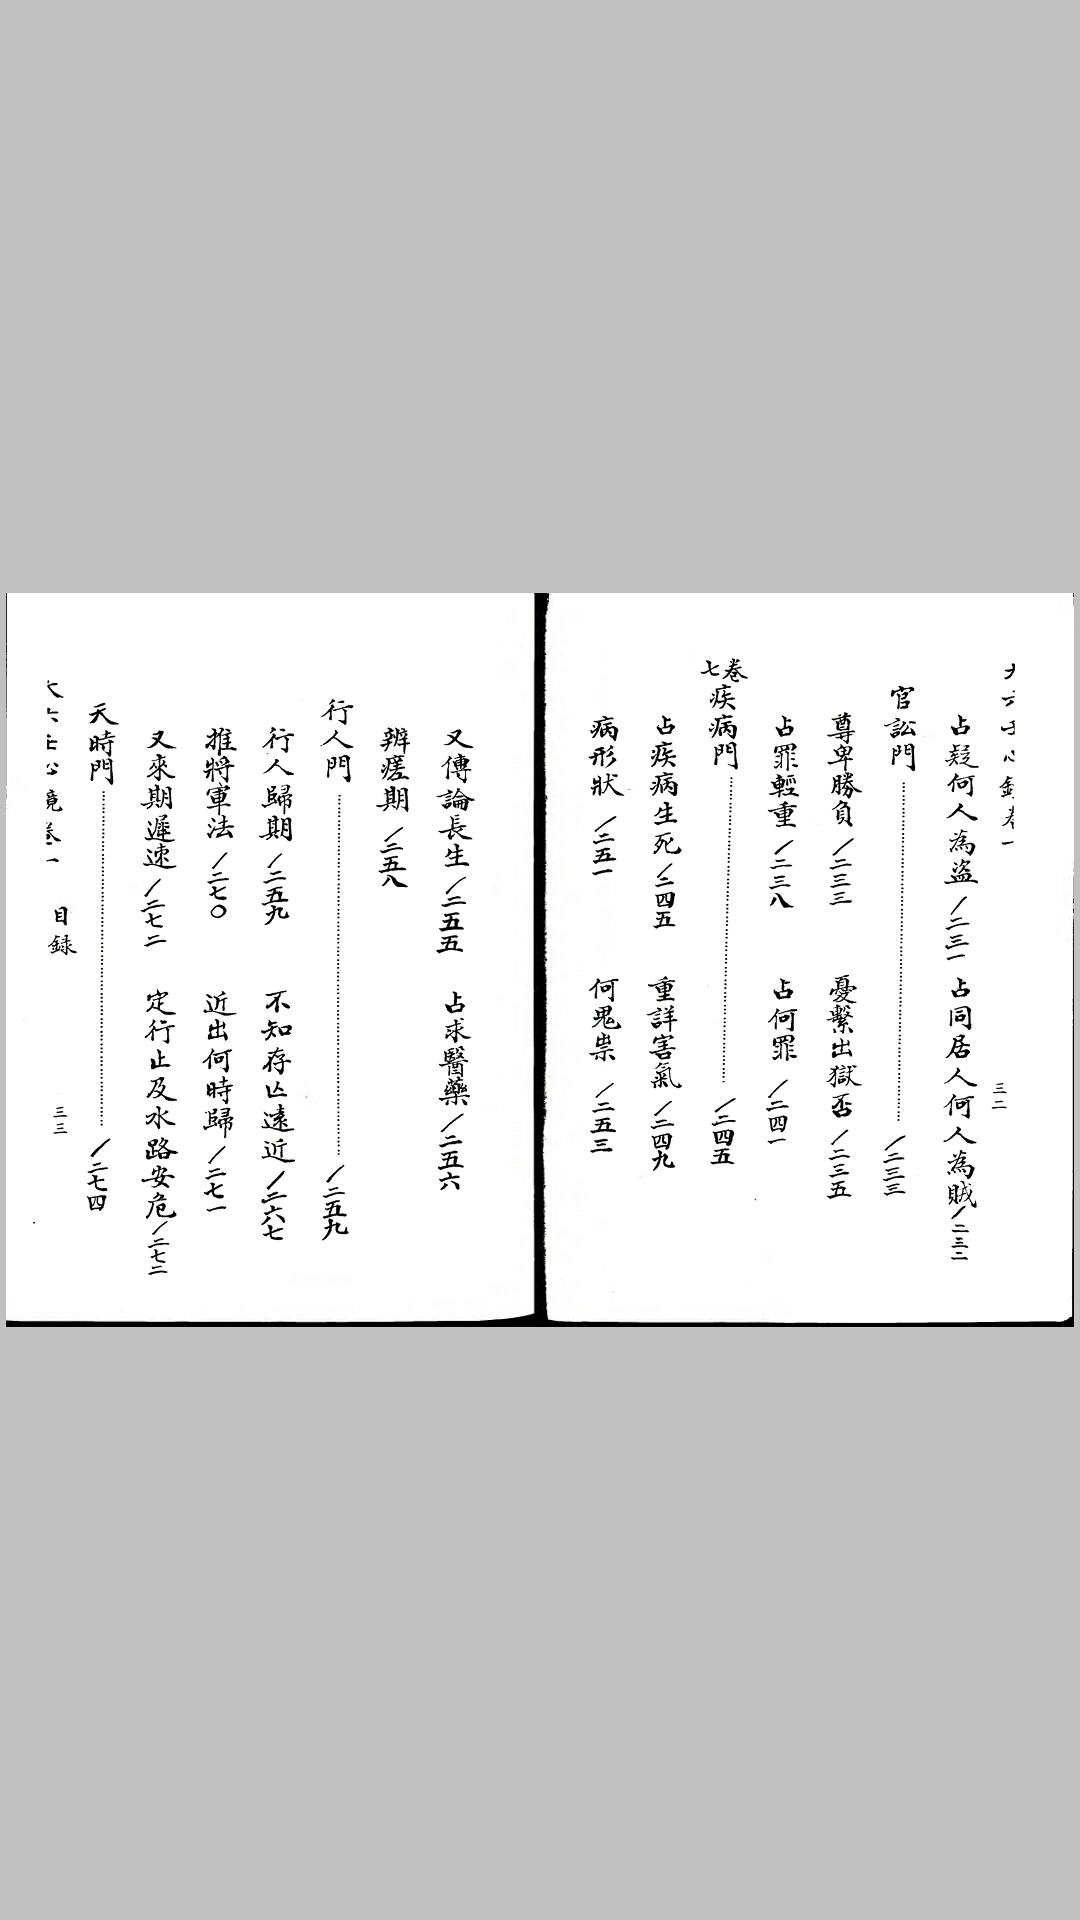 三二
占疑何人為盜／二三一 占同居人何人為賊／二三二
官訟門／二三三
尊卑勝負／二三三 憂繫出獄否／二三五
占罪輕重／二三八 占何罪／二四一
卷七 疾病門／二四五
占疾病生死／二四五 重詳害氣／二四九
病形狀／二五一 何鬼祟／二五三
又傳論長生／二五五 占求醫藥／二五六
辨瘥期／二五八
行人門／二五九
行人歸期／二五九 不知存亡遠近／二六七
推將軍法／二七〇 近出何時歸／二七一
又來期遲速／二七二 定行止及水路安危／二七二
天時門／二七四
目錄 三三